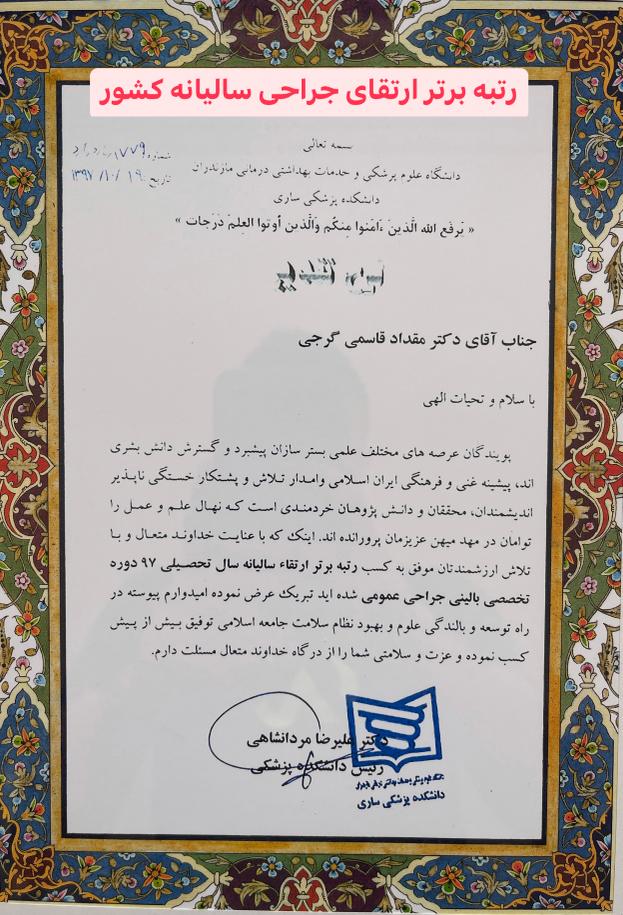 رتبه برتر ارتقای جراحی سالیانه کشور
بسمه تعالی
دانشگاه علوم پزشکی و خدمات بهداشتی درمانی مازندران
دانشکده پزشکی ساری
شماره ۱۷۷۹
تاریخ ۱۳۹۷/۱۰/۱۹
« يَرفَعِ الله الَّذينَ ءَامَنوا مِنكُم وَالَّذينَ أوتوا العِلمَ دَرَجات »
لوح تقدیر
جناب آقای دکتر مقداد قاسمی گرجی
با سلام و تحیات الهی
پویندگان عرصه های مختلف علمی بستر سازان پیشبرد و گسترش دانش بشری
اند، پیشینه غنی و فرهنگی ایران اسلامی وامدار تلاش و پشتکار خستگی ناپذیر
اندیشمندان، محققان و دانش پژوهان خردمندی است که نهال علم و عمل را
توامان در مهد میهن عزیزمان پرورانده اند. اینک که با عنایت خداوند متعال و با
تلاش ارزشمندتان موفق به کسب رتبه برتر ارتقاء سالیانه سال تحصیلی ۹۷ دوره
تخصصی بالینی جراحی عمومی شده اید تبریک عرض نموده امیدوارم پیوسته در
راه توسعه و بالندگی علوم و بهبود نظام سلامت جامعه اسلامی توفیق بیش از پیش
کسب نموده و عزت و سلامتی شما را از درگاه خداوند متعال مسئلت دارم.
دکتر علیرضا مردانشاهی
رئیس دانشکده پزشکی
دانشکده پزشکی ساری